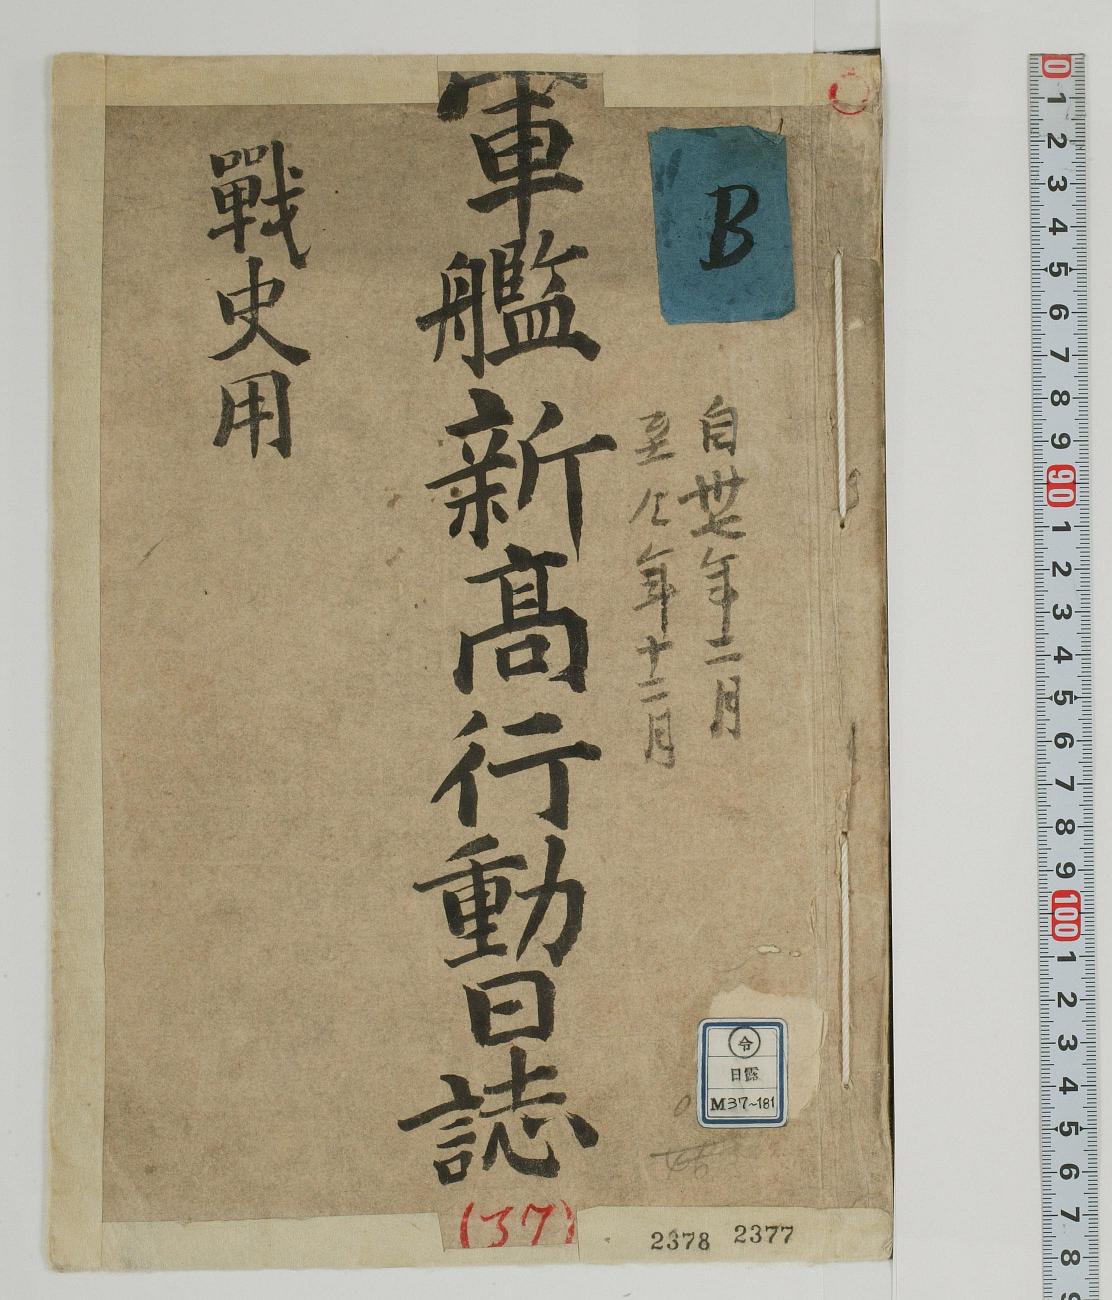 B
自丗七年二月
至仝年十二月
軍艦新高行動日誌
(37)
戰史用
令
日露
M37~181
2378 2377
0 1 2 3 4 5 6 7 8 9 90 1 2 3 4 5 6 7 8 9 100 1 2 3 4 5 6 7 8 9